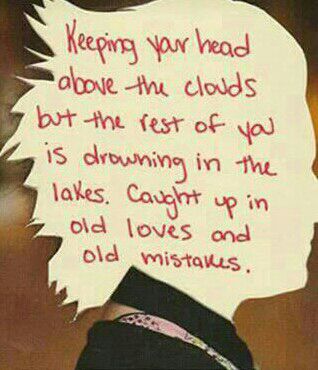 Keeping your head
above the clouds
but the rest of you
is drowning in the
lakes. Caught up in
old loves and
old mistakes.